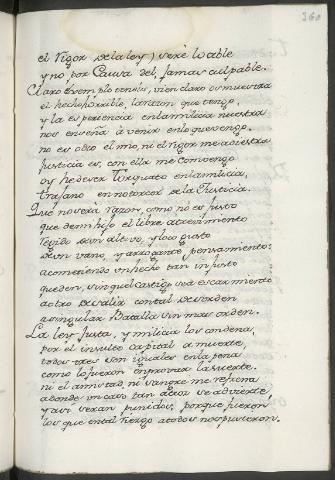 360
el Rigor de la ley) sere loable
y no, por Causa del, jamas culpable.
Claro exemplo teneis, vien claro os muestra
el hecho horrible, la razon que tengo,
y la esperiencia en la milicia nuestra
nos enseña à venir en lo que vengo.
no es otro el mio, ni el rigor me adiestra
justicia es, con ella me convengo
oy he de ser Torquato en la milicia,
trajano en no torcer de la Justicia.
Que no verà razon, como no es justo
que de mi hijo el libre atrevimiento
regido de un altivo, y loco gusto
de un vano, y arrogante pensamiento:
acometiendo un hecho tan injusto
queden, sin que Castigo sea escarmiento
a otro de salir con tal desorden
a singular Batalla sin mas orden.
La ley justa, y milicia los condena,
por el insulto capital a muerte,
todos tres son iguales en la pena
como lo fueron en provar la suerte.
ni el amistad, ni sangre me refrena
adonde un caso tan atroz se advierte,
y assi seran punidos, porque fueron
los que en tal riesgo a todos nos pusieron.